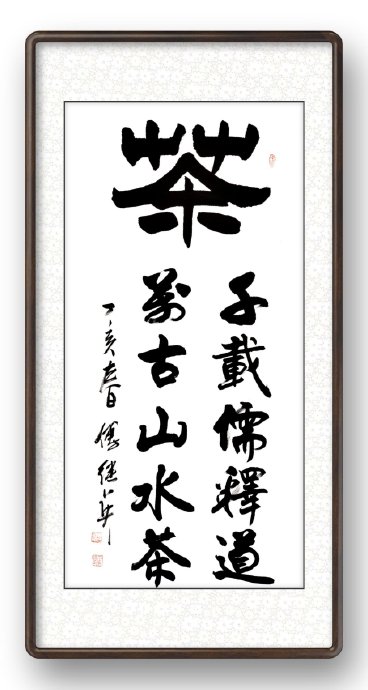 茶
子載儒釋道
萬古山水茶
丁亥春日